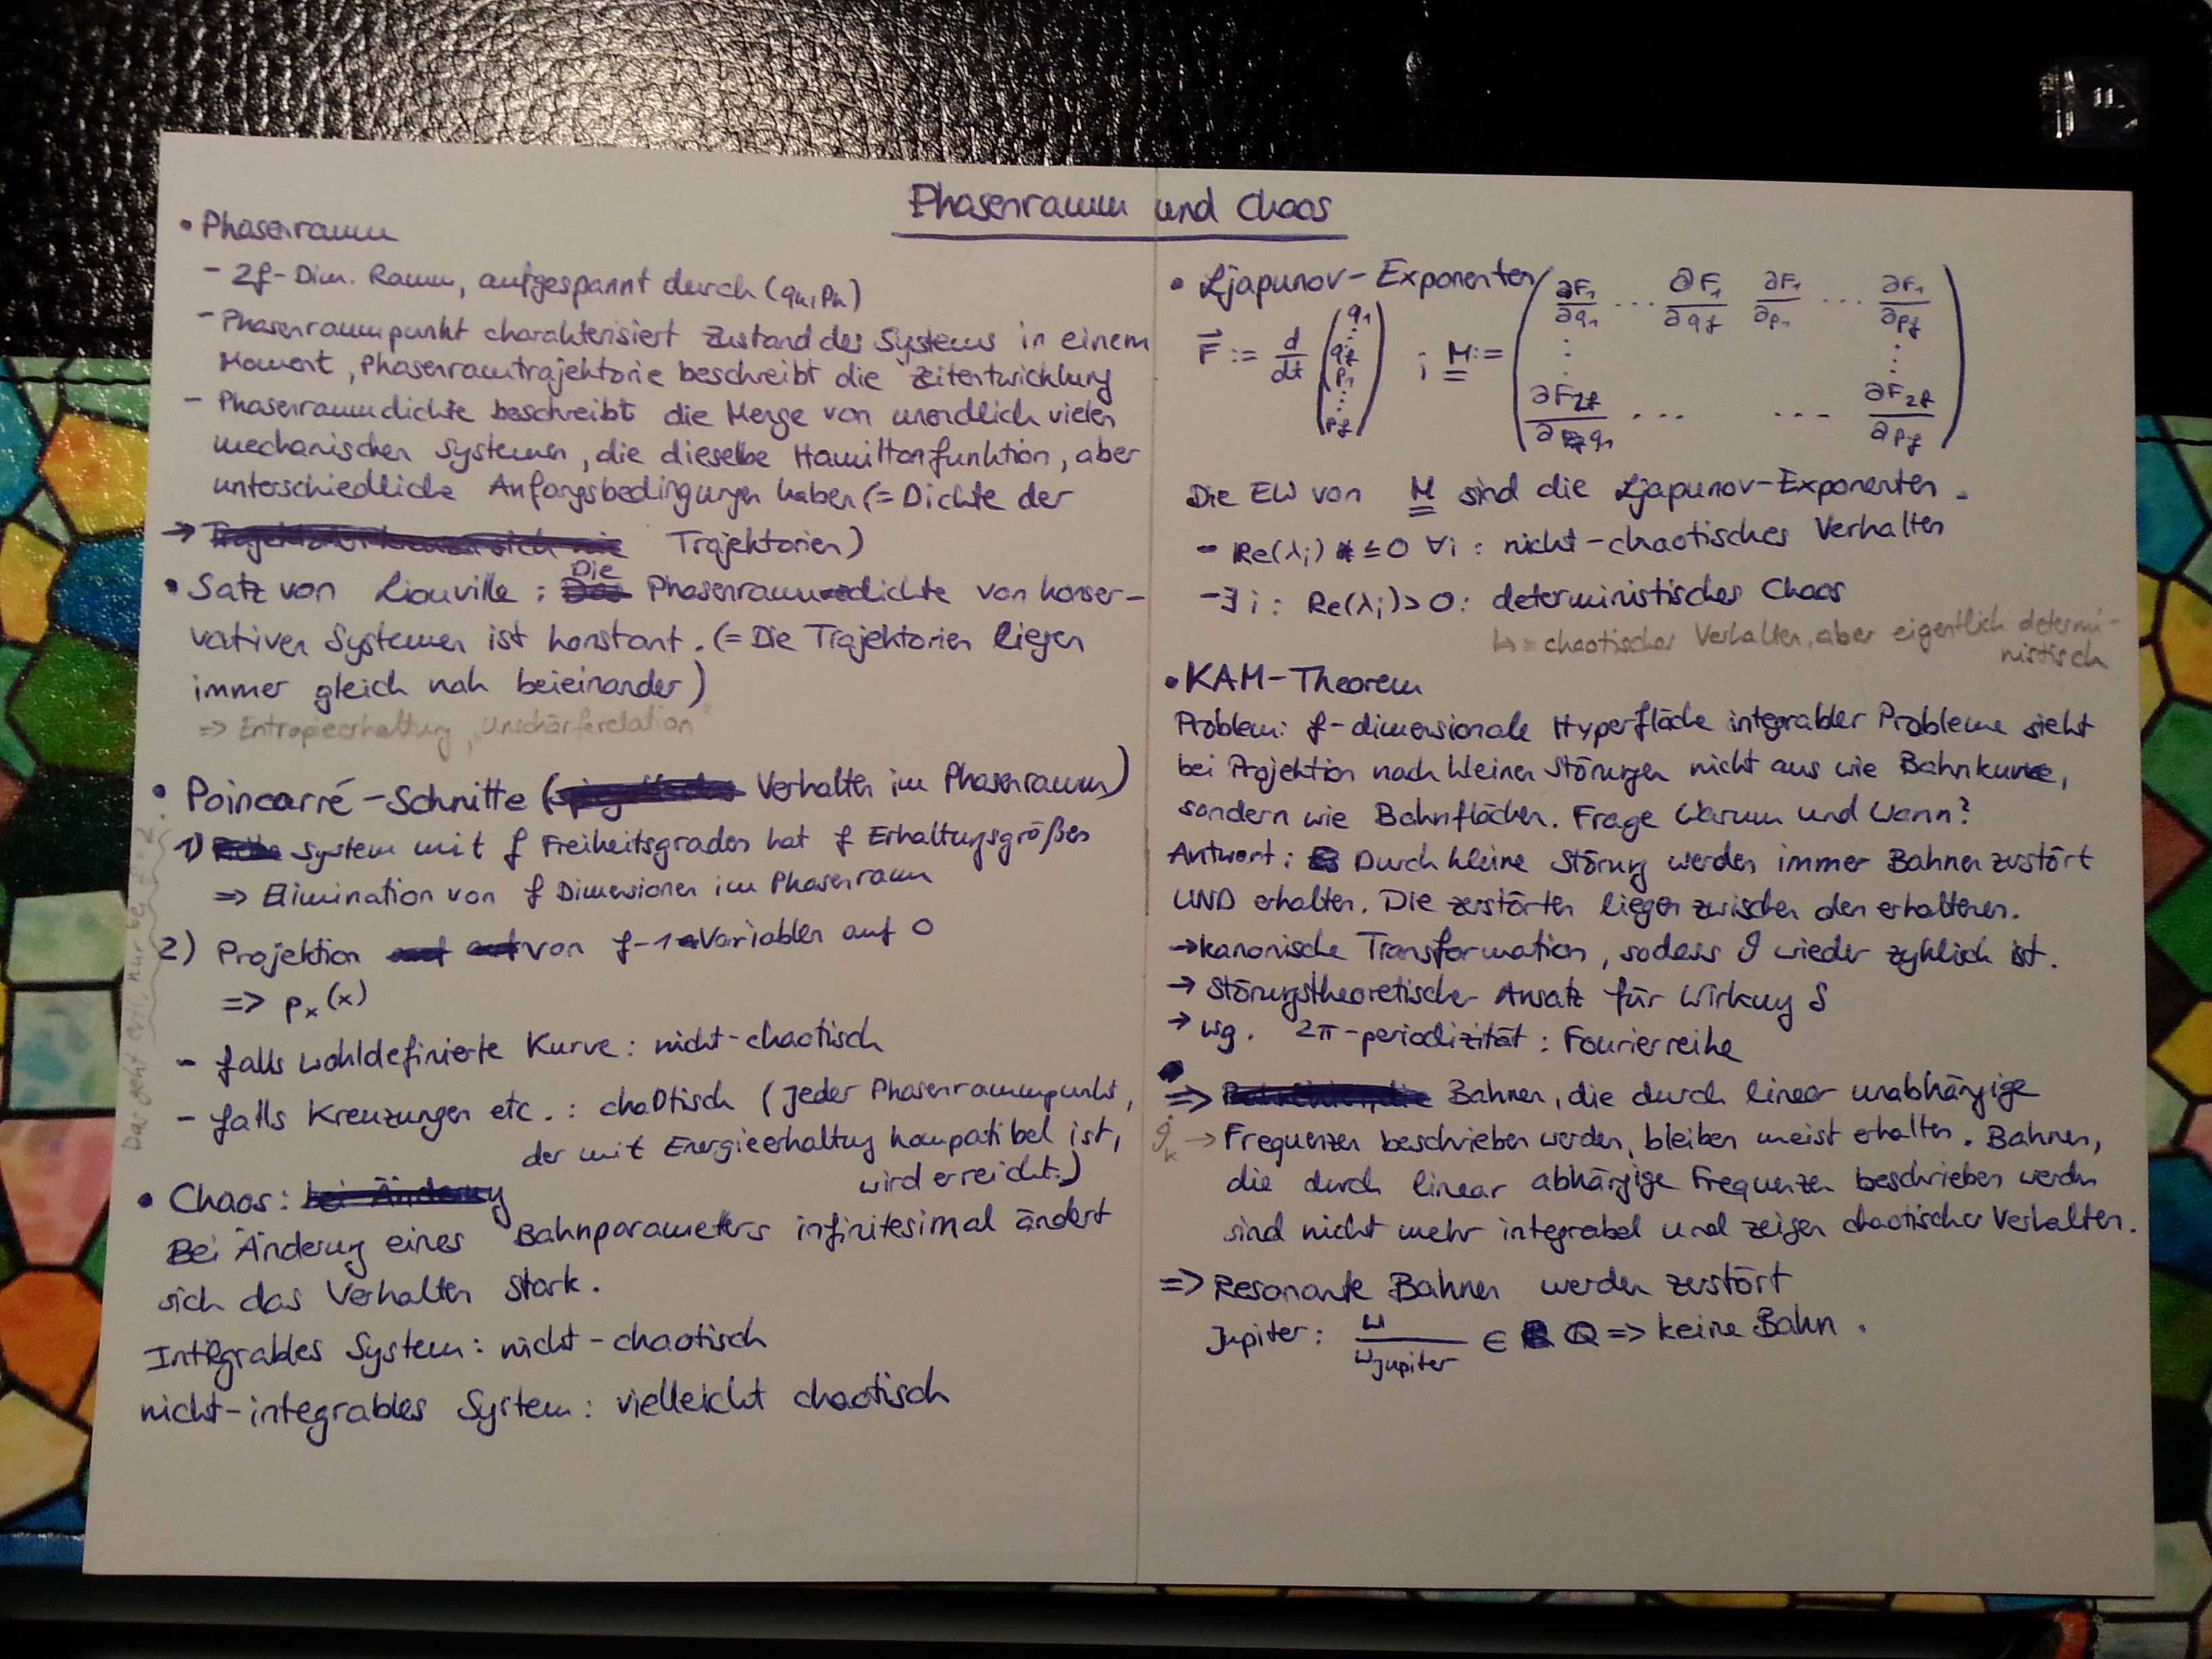 Phasenraum und Chaos
• Phasenraum
- 2f-Dim. Raum, aufgespannt durch (qₖ, pₖ)
- Phasenraumpunkt charakterisiert Zustand des Systems in einem
Moment, Phasenraumtrajektorie beschreibt die Zeitentwicklung
- Phasenraumdichte beschreibt die Menge von unendlich vielen
mechanischen Systemen, die dieselbe Hamiltonfunktion, aber
unterschiedliche Anfangsbedingungen haben (= Dichte der
→ Trajektorien)
• Satz von Liouville: Die Phasenraumdichte von konser-
vativen Systemen ist konstant. (= Die Trajektorien liegen
immer gleich nah beieinander)
=> Entropieerhaltung, "Unschärferelation"
• Poincarré-Schnitte (Verhalten im Phasenraum)
1) System mit f Freiheitsgraden hat f Erhaltungsgrößen
=> Elimination von f Dimensionen im Phasenraum
2) Projektion von f-1 Variablen auf 0
=> pₓ(x)
- falls wohldefinierte Kurve: nicht-chaotisch
- falls Kreuzungen etc.: chaotisch (Jeder Phasenraumpunkt,
der mit Energieerhaltung kompatibel ist,
wird erreicht.)
Das geht nur f=2.
• Chaos: bei Änderung
Bei Änderung eines Bahnparameters infinitesimal ändert
sich das Verhalten stark.
Integrables System: nicht-chaotisch
nicht-integrables System: vielleicht chaotisch
• Ljapunov-Exponenten
F⃗ := d/dt (q₁ ⋮ q_f p₁ ⋮ p_f) ; M := (∂F₁/∂q₁ ... ∂F₁/∂q_f ∂F₁/∂p₁ ... ∂F₁/∂p_f
⋮ ⋮
∂F_2f/∂q₁ ... ... ∂F_2f/∂p_f)
Die EW von M sind die Ljapunov-Exponenten.
- Re(λᵢ) ≤ 0 ∀i : nicht-chaotisches Verhalten
- ∃ i : Re(λᵢ) > 0 : deterministisches Chaos
↳ = chaotisches Verhalten, aber eigentlich determi-
nistisch
• KAM-Theorem
Problem: f-dimensionale Hyperfläche integrabler Probleme sieht
bei Projektion nach kleinen Störungen nicht aus wie Bahnkurve,
sondern wie Bahnflächen. Frage Warum und Wann?
Antwort: Durch kleine Störung werden immer Bahnen zustört
UND erhalten. Die zerstörten liegen zwischen den erhaltenen.
→ kanonische Transformation, sodass ϑ wieder zyklisch ist.
→ Störungstheoretischer Ansatz für Wirkung S
→ wg. 2π-periodizität: Fourierreihe
=> Bahnen, die durch linear unabhängige
ϑ̇ₖ → Frequenzen beschrieben werden, bleiben meist erhalten. Bahnen,
die durch linear abhängige Frequenzen beschrieben werden
sind nicht mehr integrabel und zeigen chaotisches Verhalten.
=> Resonante Bahnen werden zerstört
Jupiter: ω/ω_Jupiter ∈ Q => keine Bahn.